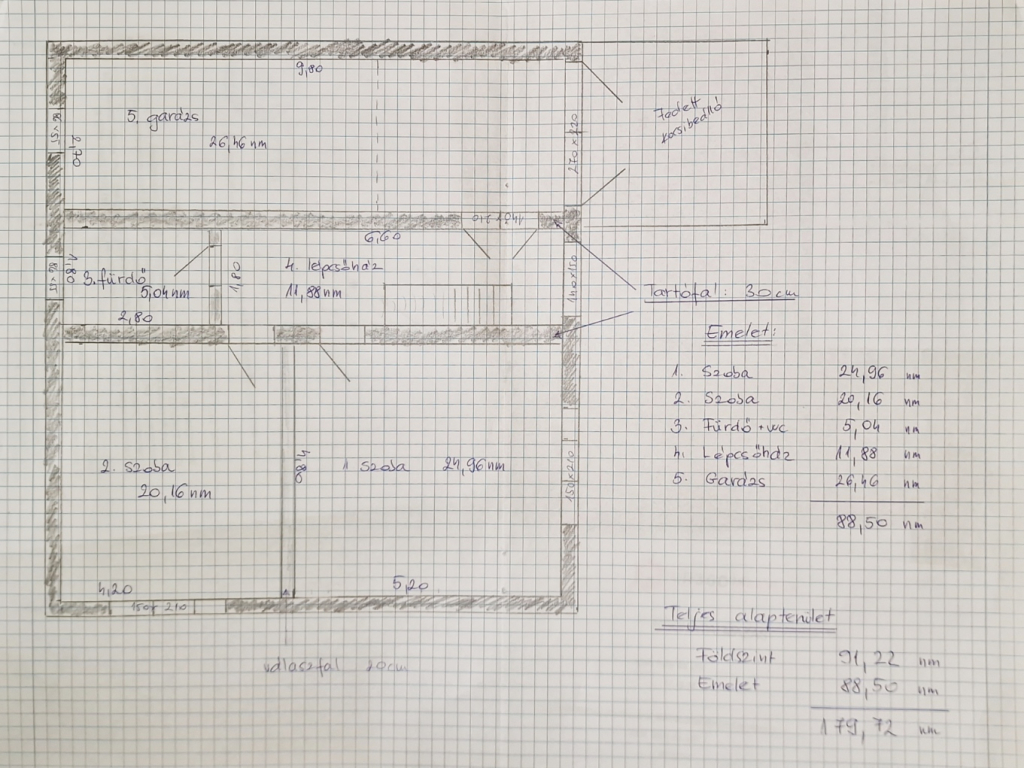 9,80
5. garázs
26,46 nm
2,70
270 x 220
Fedett
kocsibeálló
140 x 210
6,60
3. fürdő
5,04 nm
1,80
2,80
1,80
4. lépcsőház
11,88 nm
140 x 150
Tartófal: 30 cm
Emelet:
1. Szoba 24,96 nm
2. Szoba 20,16 nm
3. Fürdő + wc 5,04 nm
4. Lépcsőház 11,88 nm
5. Garázs 26,46 nm
88,50 nm
2. szoba
20,16 nm
4,80
1 szoba 24,96 nm
150 x 210
4,20
5,20
150 x 210
válaszfal 20cm
Teljes alapterület
Földszint 91,22 nm
Emelet 88,50 nm
179,72 nm